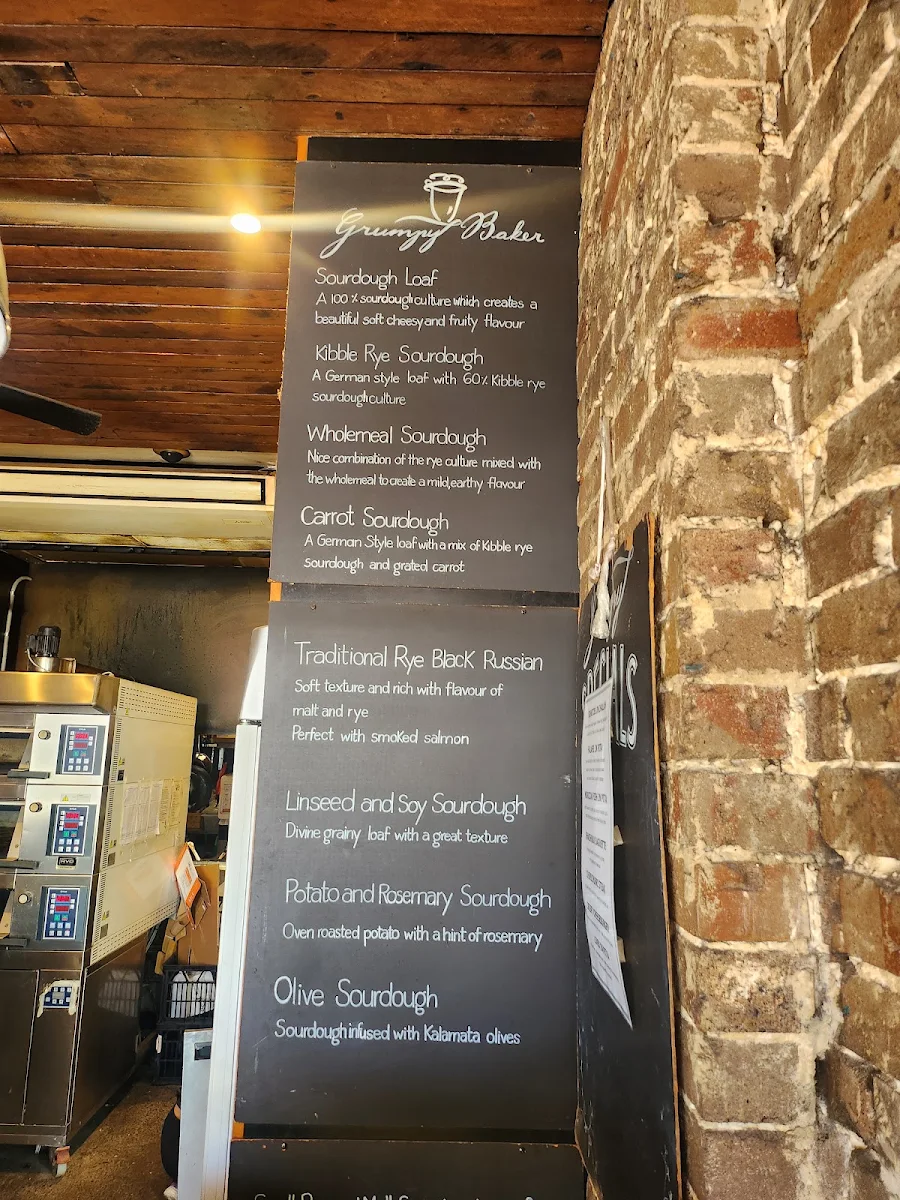 Grumpy Baker
Sourdough Loaf
A 100% sourdough culture which creates a
beautiful soft cheesy and fruity flavour
Kibble Rye Sourdough
A German style loaf with 60% Kibble rye
sourdough culture
Wholemeal Sourdough
Nice combination of the rye culture mixed with
the wholemeal to create a mild, earthy flavour
Carrot Sourdough
A German Style loaf with a mix of Kibble rye
sourdough and grated carrot
Traditional Rye Black Russian
Soft texture and rich with flavour of
malt and rye
Perfect with smoked salmon
Linseed and Soy Sourdough
Divine grainy loaf with a great texture
Potato and Rosemary Sourdough
Oven roasted potato with a hint of rosemary
Olive Sourdough
Sourdough infused with Kalamata olives
SPECIALS